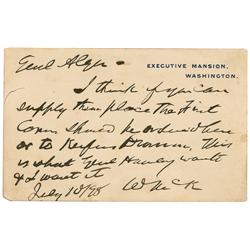 EXECUTIVE MANSION,
WASHINGTON.
Genl Alger -
I think if you can
supply their place the First
Conn should be ordered here
or to this
is what Genl Hawley wants
& I want it
July 10/98 W McK